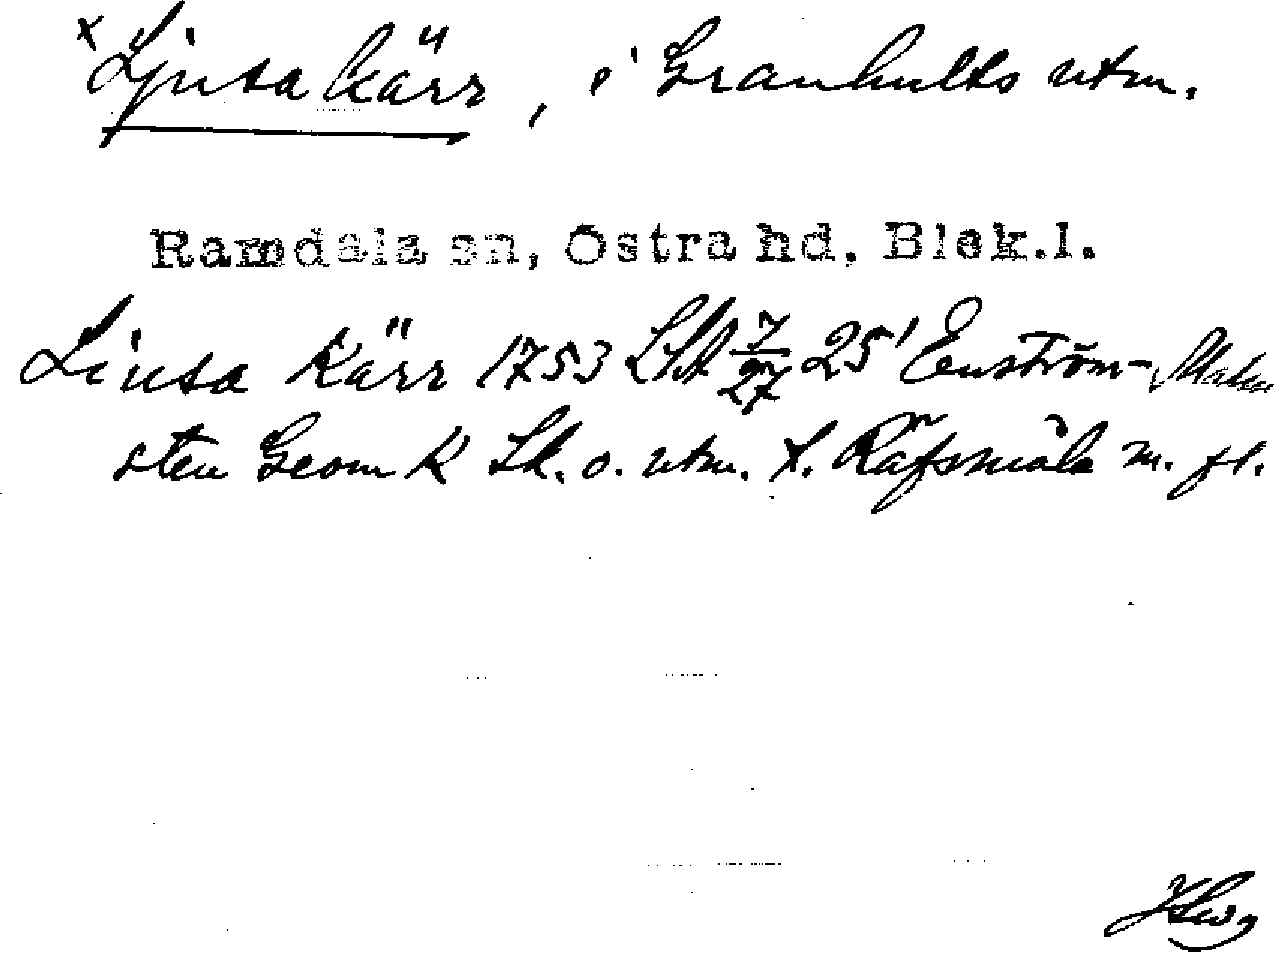 x Ljusa kärr, i Granhults utm.
Ramdala sn, Östra hd. Blek.l.
Liusa Kärr 1753 LSA 7/27 25' Enström - Malm
sten Geom K Sk. o. utm. t. Räfsmåla m. fl.